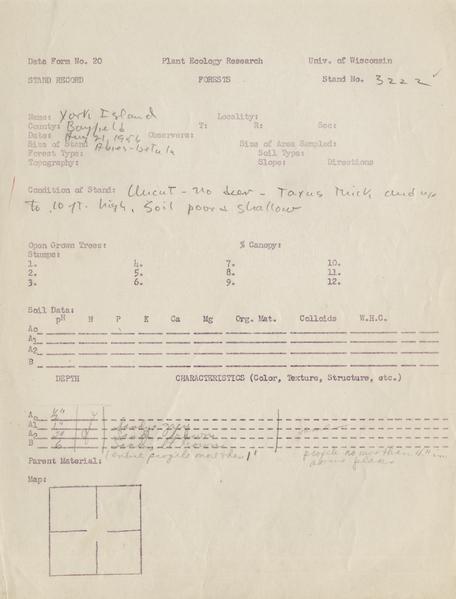 Data Form No. 20 Plant Ecology Research Univ. of Wisconsin
STAND RECORD FORESTS Stand No. 3222
Name: York Island Locality:
County: Bayfield T: R: Sec:
Date: Aug 21, 1956 Observers:
Size of Stand Size of Area Sampled:
Forest Type: Abies-betula Soil Type:
Topography: Slope: Directions
Condition of Stand: Uncut - no deer - Taxus thick and up
to 10 ft. high. Soil poor & shallow
Open Grown Trees: % Canopy:
Stumps:
1. 4. 7. 10.
2. 5. 8. 11.
3. 6. 9. 12.
Soil Data:
pH N P K Ca Mg Org. Mat. Colloids W.H.C.
Ao
A1
A2
B
DEPTH CHARACTERISTICS (Color, Texture, Structure, etc.)
Ao
A1 1"
A2
B 6
(entire profile more than 1" profile no more than 4"
Parent Material: above
Map: